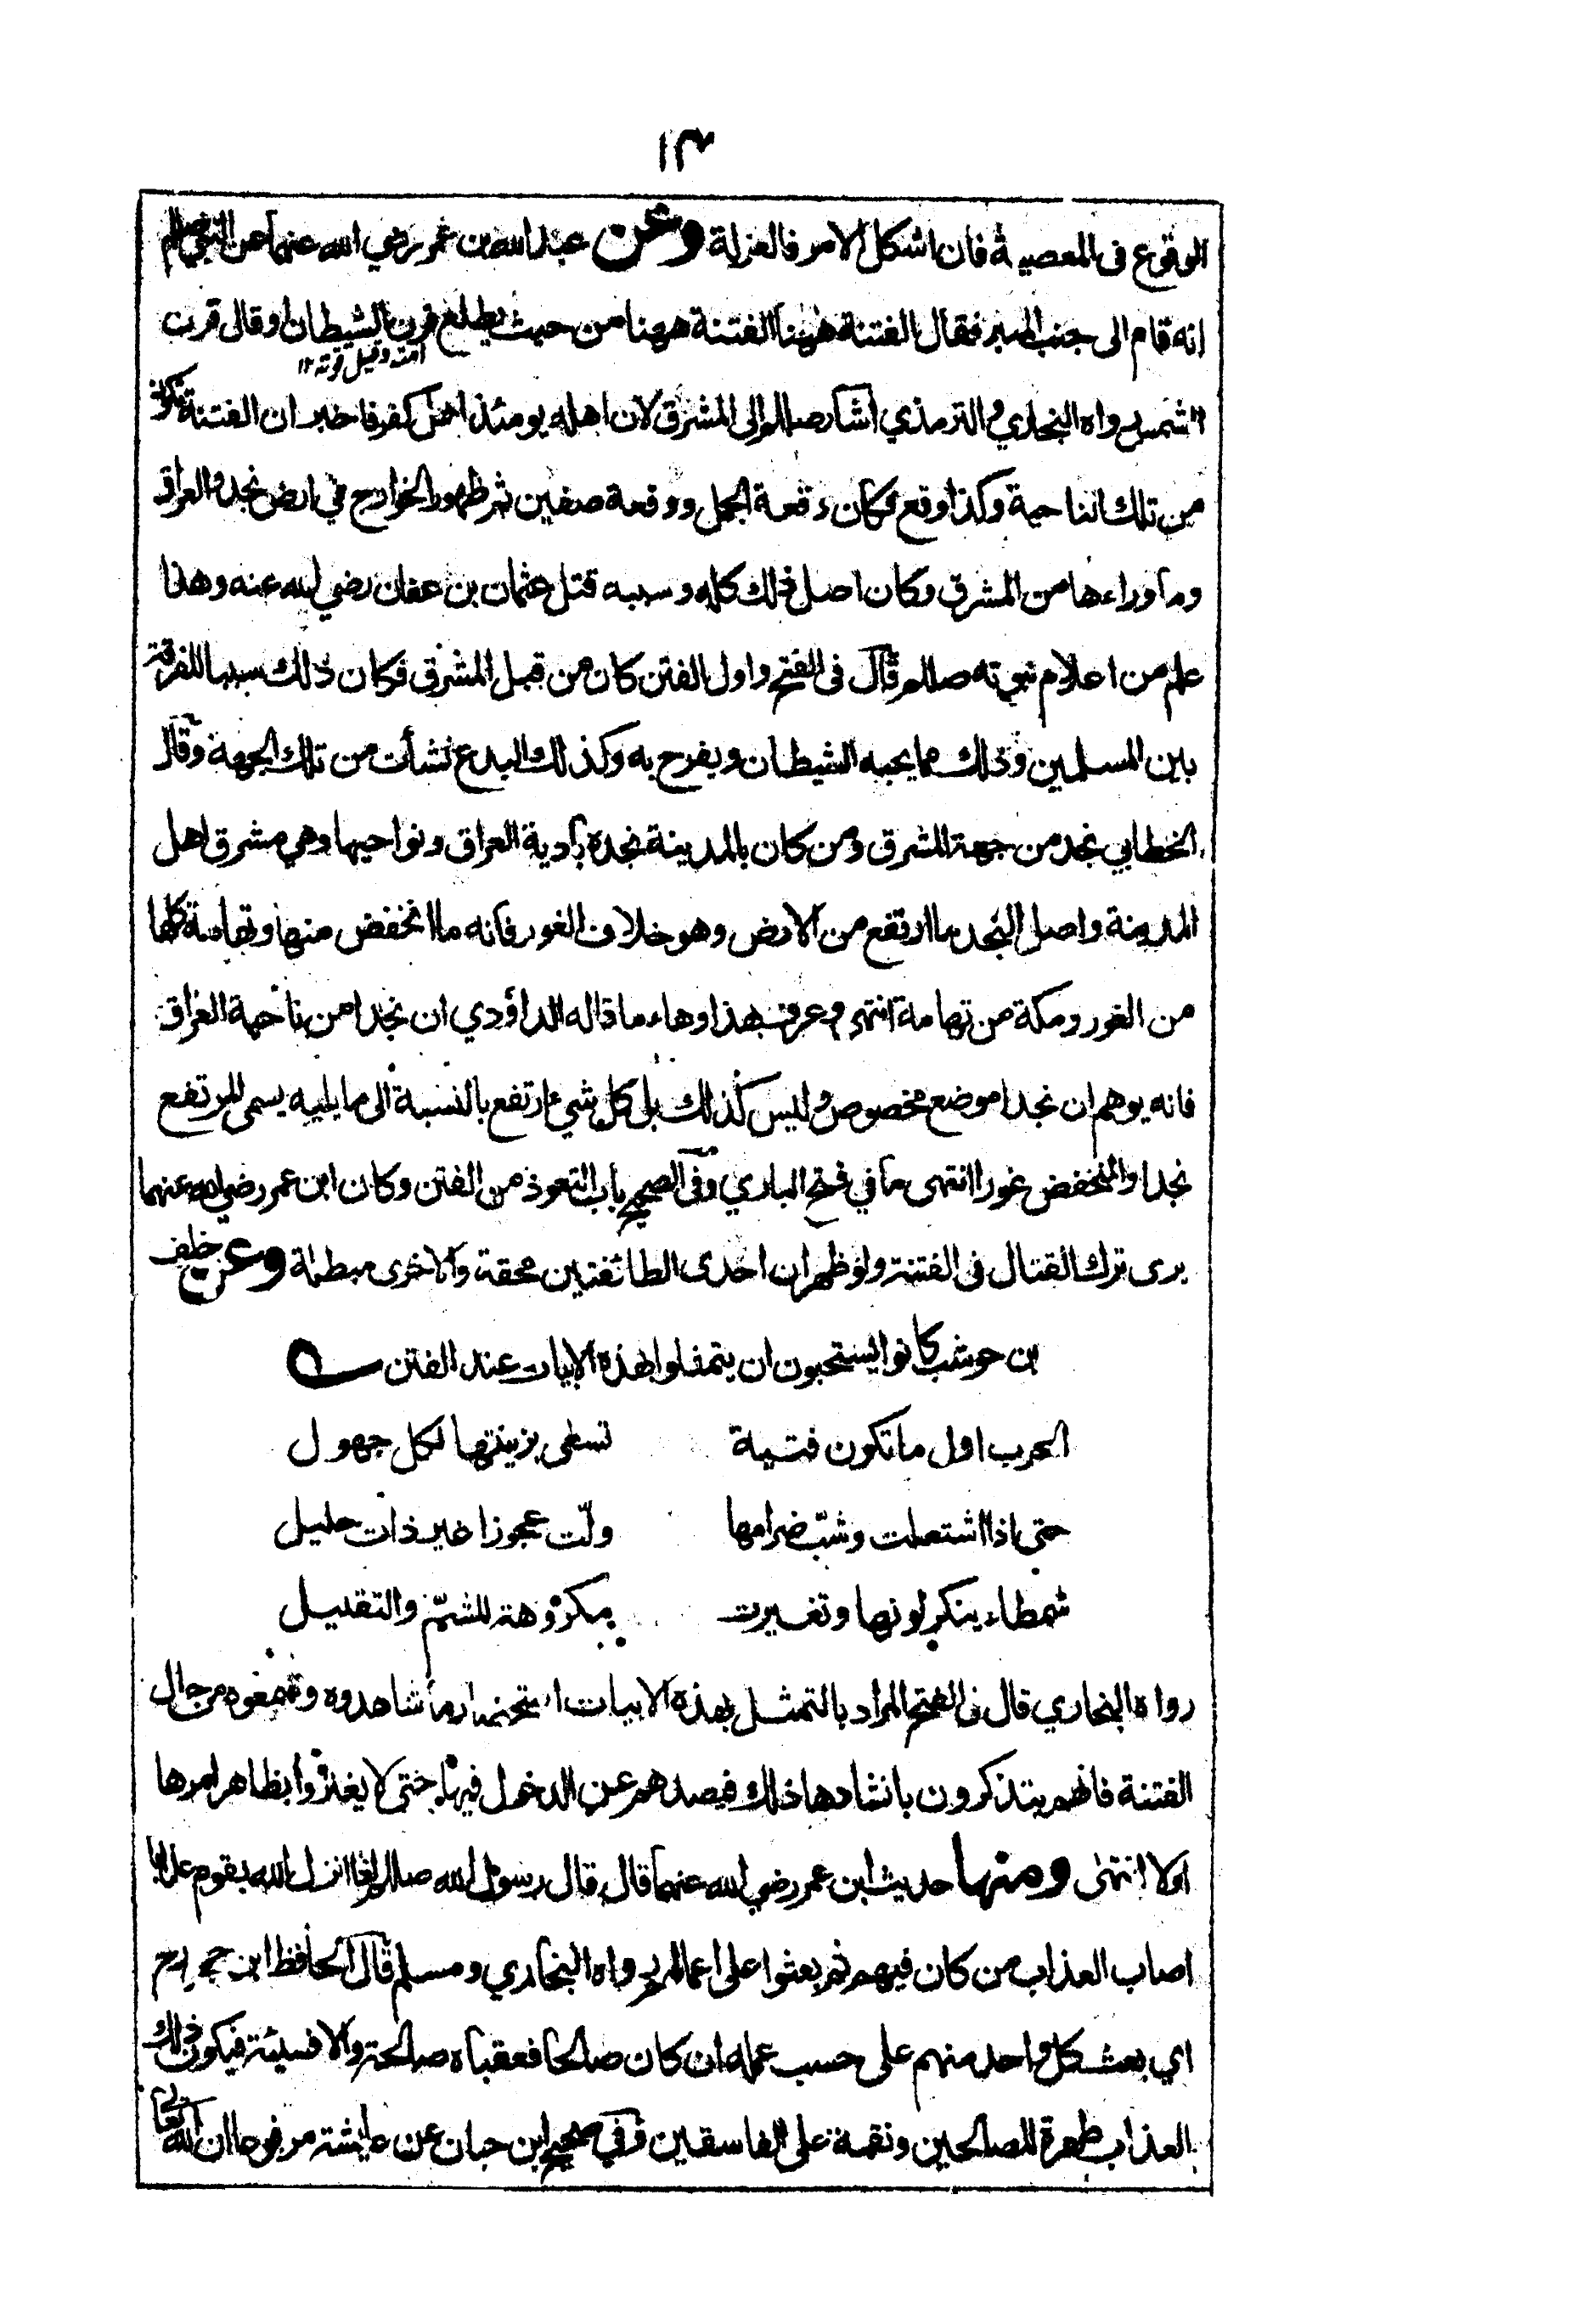 ١٣
الوقوع فى المعصية فان اشكل الامر فالعزلة وعن عبد الله بن عمر رضي الله عنهما عن النبي صللم
انه قام الى جنب المنبر فقال الفتنة ههنا الفتنة ههنا من حيث يطلع قرن الشيطان او قال قرن
امته وقيل قوته ١٢
الشمس رواه البخاري والترمذي اشار صللم الى المشرق لان اهله يومئذ اهل كفر فاخبر ان الفتنة تكون
من تلك الناحية وكذا وقع فكان وقعة الجمل ووقعة صفين ثم ظهور الخوارج في ارض نجد والعراق
وما وراءها من المشرق وكان اصل ذلك كله وسببه قتل عثمان بن عفان رضي الله عنه وهذا
علم من اعلام نبوته صللم قال فى الفتح واول الفتن كان من قبل المشرق فكان ذلك سببا للفرقة
بين المسلمين وذلك مما يحبه الشيطان ويفرح به وكذلك البدع نشأت من تلك الجهة وقال
الخطابي نجد من جهة المشرق ومن كان بالمدينة نجده بادية العراق ونواحيها وهي مشرق اهل
المدينة واصل النجد ما ارتفع من الارض وهو خلاف الغور فانه ما انخفض منها وتهامة كلها
من الغور ومكة من تهامة انتهى وعرف بهذا وهاء ما قاله الداؤدي ان نجدا من ناحية العراق
فانه يوهم ان نجدا موضع مخصوص وليس كذلك بل كل شيء ارتفع بالنسبة الى ما يليه يسمى المرتفع
نجدا والمنخفض غورا انتهى ما في فتح الباري وفى الصحيح باب التعوذ من الفتن وكان ابن عمر رضي الله عنهما
يرى ترك القتال فى الفتنة ولو ظهر ان احدى الطائفتين محقة والاخرى مبطلة وعن خلف
بن حوشب كانوا يستحبون ان يتمثلوا بهذه الابيات عند الفتن
الحرب اول ما تكون فتية تسعى بزينتها لكل جهول
حتى اذا اشتعلت وشبّ ضرامها ولّت عجوزا غير ذات حليل
شمطاء ينكر لونها وتغيرت مكروهة للشمّ والتقبيل
رواه البخاري قال فى الفتح المراد بالتمثل بهذه الابيات استحضار ما شاهدوه وسمعوه من حال
الفتنة فانهم يتذكرون بانشادها ذلك فيصدهم عن الدخول فيها حتى لا يغتروا بظاهر امرها
اولا انتهى ومنها حديث ابن عمر رضي الله عنهما قال قال رسول الله صللم اذا انزل الله بقوم عذابا
اصاب العذاب من كان فيهم ثم بعثوا على اعمالهم رواه البخاري ومسلم قال الحافظ ابن حجر رح
اي بعث كل واحد منهم على حسب عمله ان كان صالحا فعقباه صالحة والا فسيئة فيكون ذلك
العذاب طهرة للصالحين ونقمة على الفاسقين وفي صحيح ابن حبان عن عايشة مرفوعا ان الله تعالى